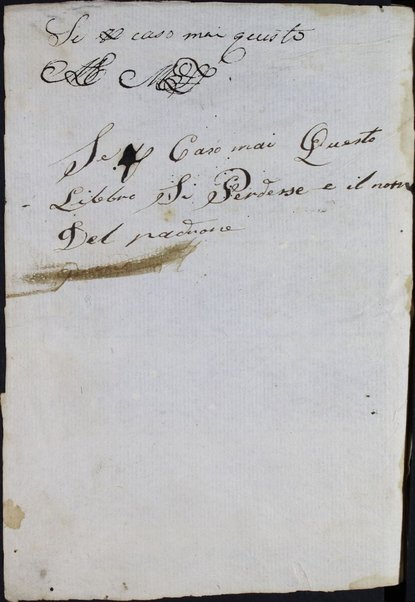 Se caso mai questo
Se Caso mai Questo
Libbro Si Perdesse e il nom
Del padrone